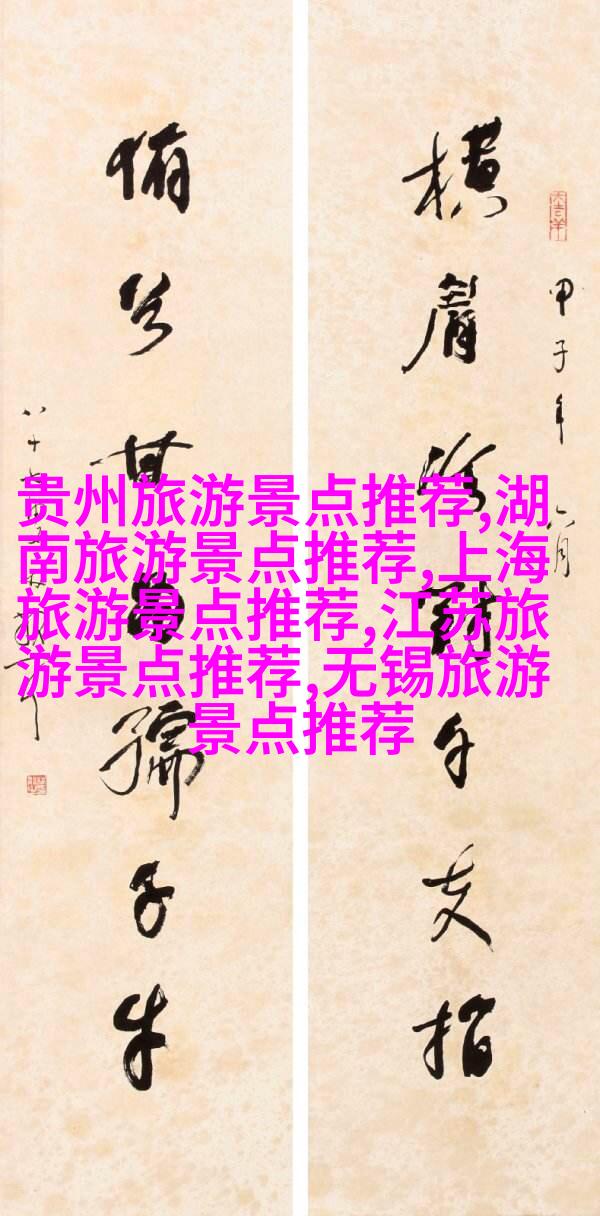 甲子年六月
横眉冷對千夫指
俯首甘為孺子牛
八十七
贵州旅游景点推荐,湖
南旅游景点推荐,上海
旅游景点推荐,江苏旅
游景点推荐,无锡旅游
景点推荐